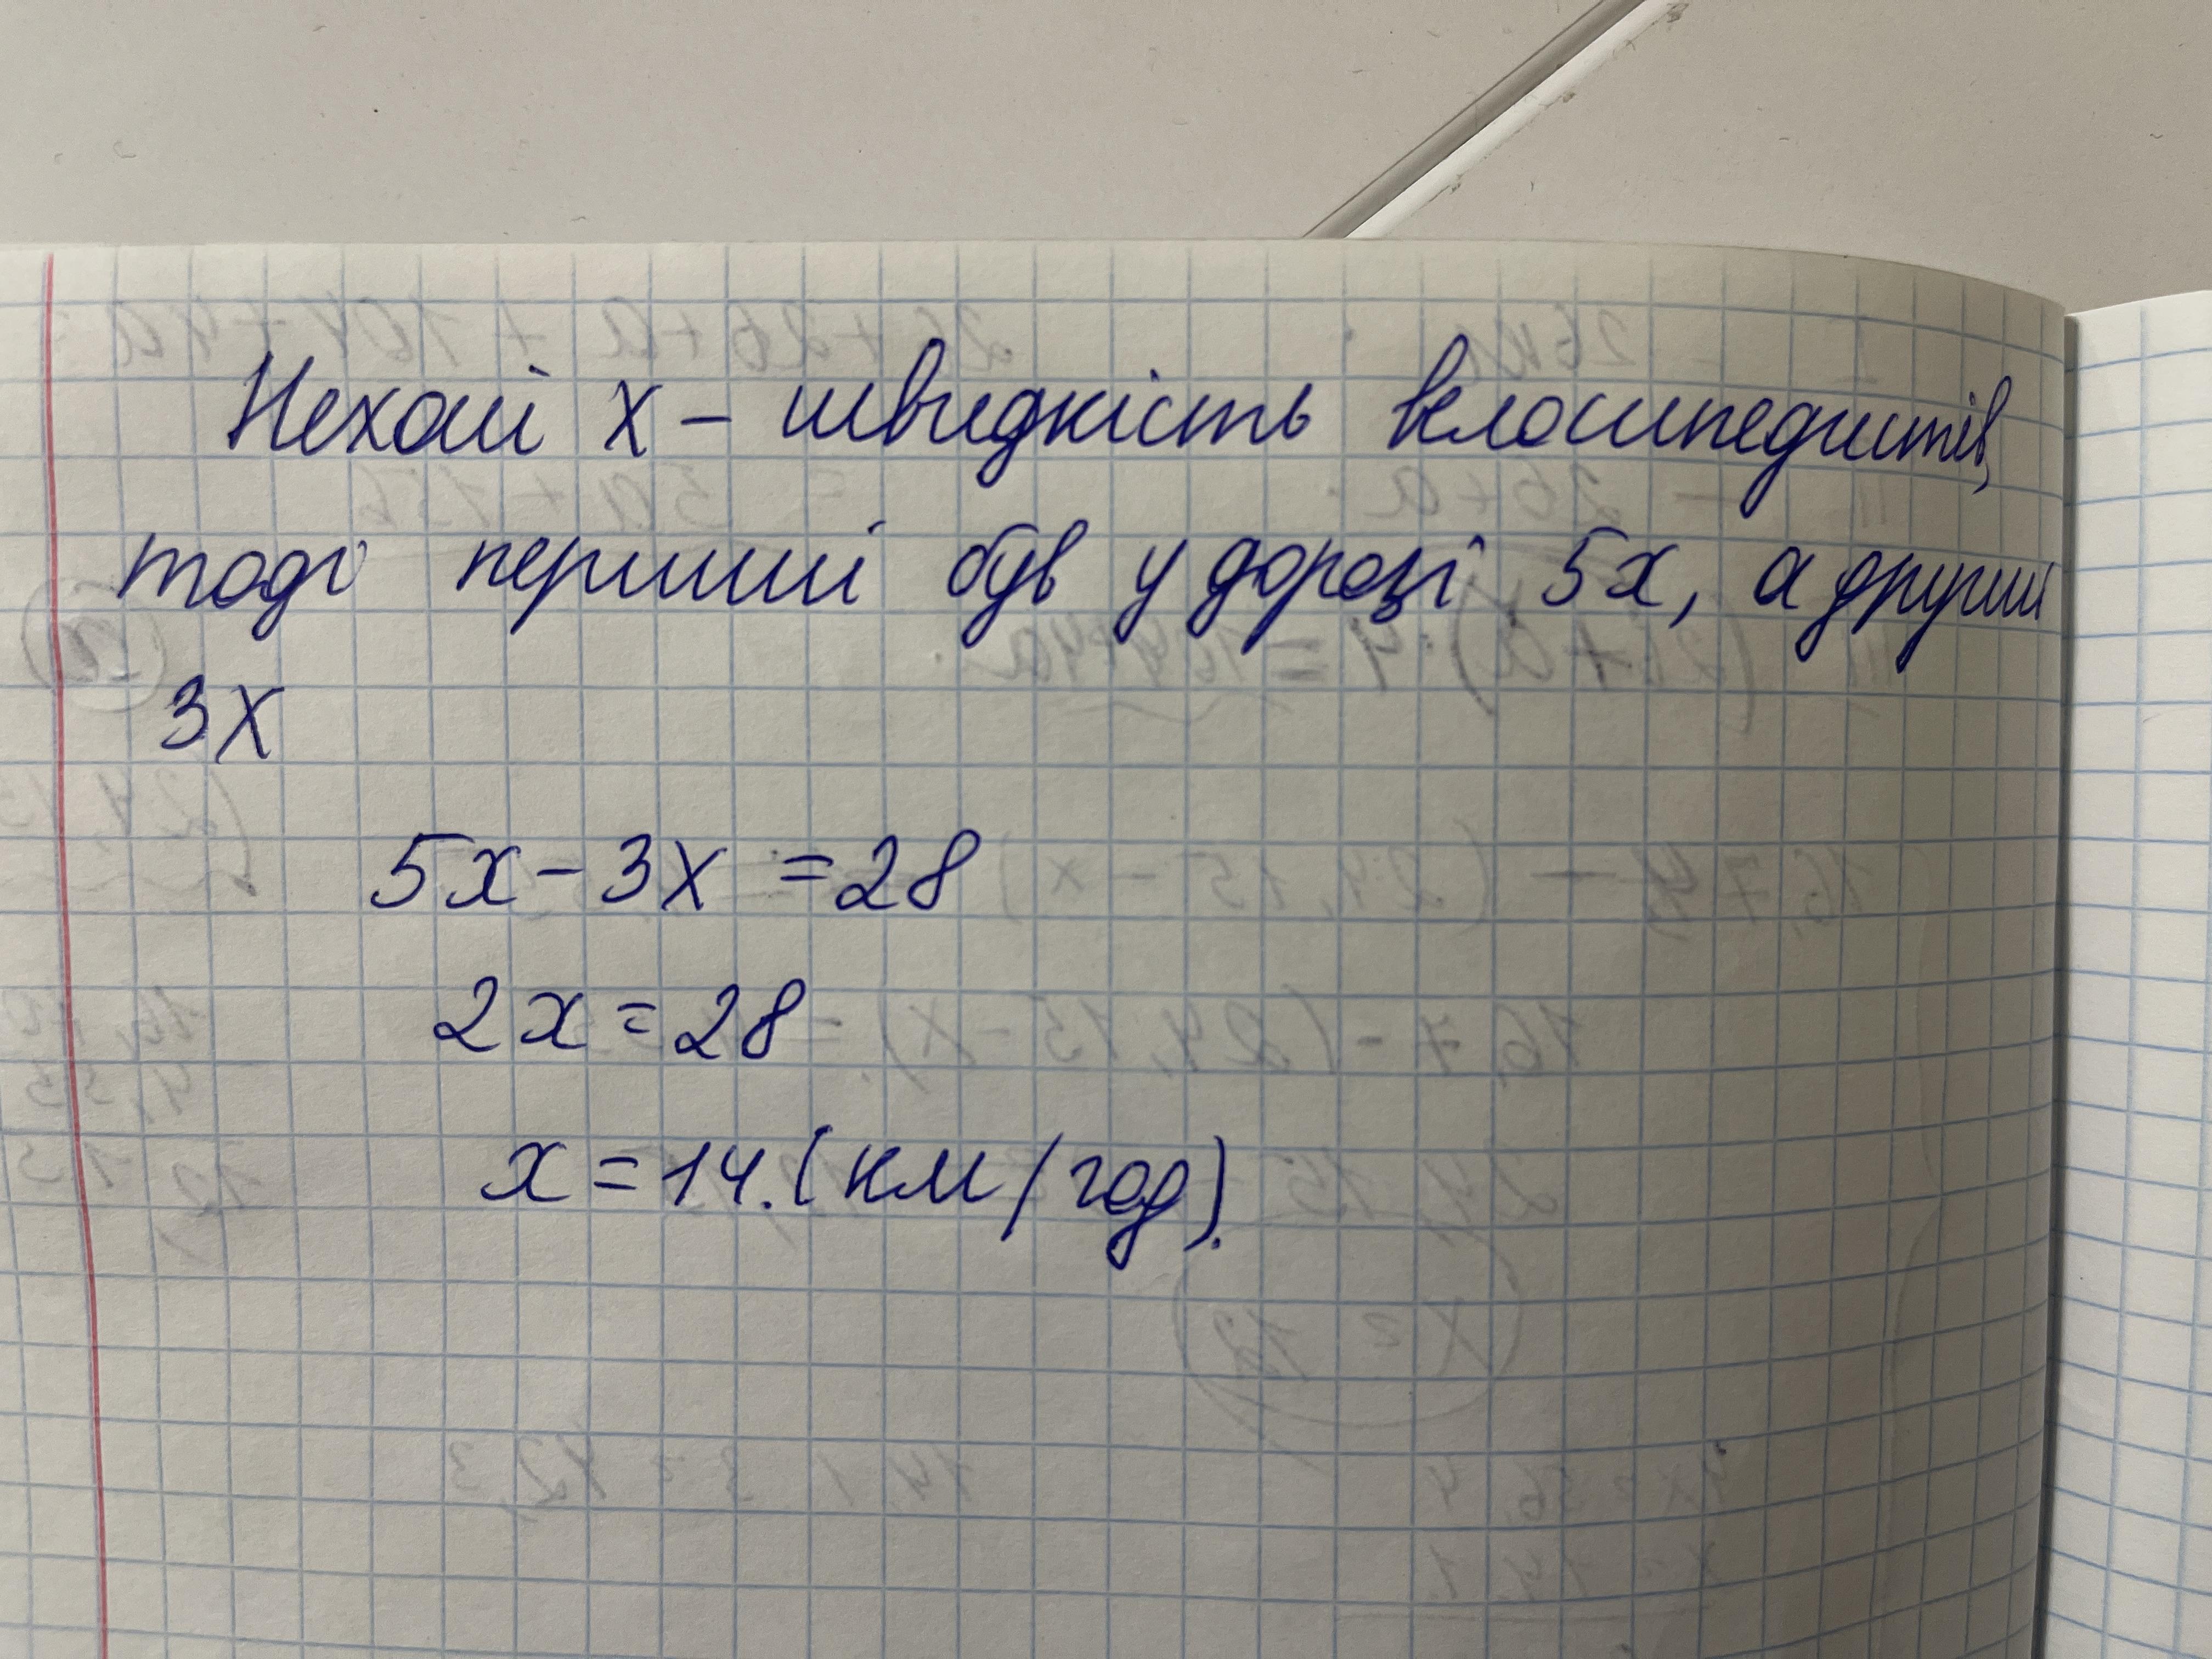 Нехай х – швидкість велосипедистів,
тоді перший був у дорозі 5х, а другий
3х
5х – 3х = 28
2х = 28
х = 14. (км/год).